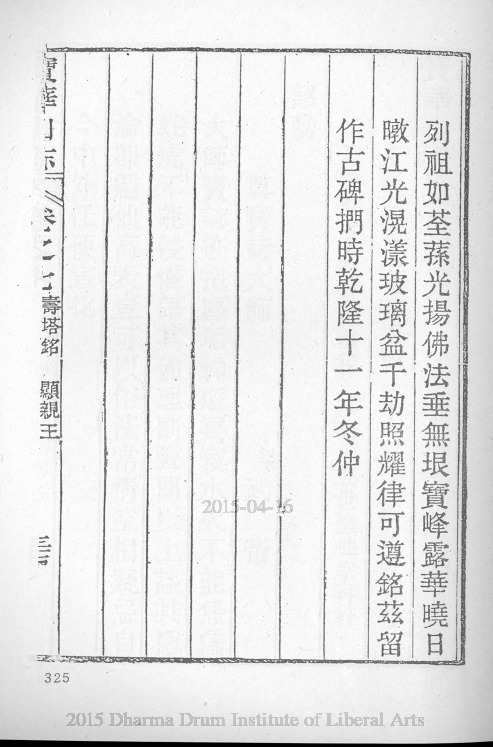 列祖如荃蓀光揚佛法垂無垠寶峰露華曉日
暾江光滉漾玻璃盆千劫照耀律可遵銘茲留
作古碑捫時乾隆十一年冬仲
寶華山志 卷之七 壽塔銘 顯親王
2015-04-16
325
2015 Dharma Drum Institute of Liberal Arts